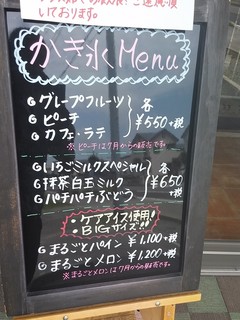 いております。
かき氷 Menu
◎グレープフルーツ
◎ピーチ
◎カフェ・ラテ
各 ¥550+税
※ピーチは7月からの販売です。
◎いちごミルクスペシャル
◎抹茶白玉ミルク
◎パチパチぶどう
各 ¥650+税
：ケアイス使用！
：BIGサイズ！
◎まるごとパイン ¥1,100+税
◎まるごとメロン ¥1,200+税
※まるごとメロンは7月からの販売です。